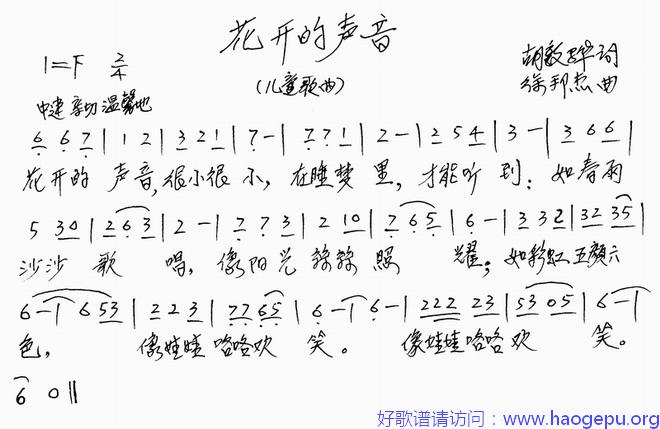 花开的声音
(儿童歌曲)
1=F 2/4
胡敦骅词
徐邦杰曲
中速 亲切 温馨地
6 6 7 | 1 2 | 3 2 1 | 7 - | 7 7 1 | 2 - | 2 5 4 | 3 - | 3 6 6 |
花开的 声音,很小很 小,在睡梦 里,才能听 到;如春雨
5 30 | 2 6 3 | 2 - | 7 7 3 | 2 10 | 7 65 | 6 - | 3 32 | 32 35 |
沙沙 歌 唱,像阳光 絲絲 照 耀;如彩虹 五颜六
6 - | 6 53 | 2 2 3 | 77 65 | 6 - | 6 - | 222 23 | 53 05 | 6 - |
色, 像娃娃 咯咯欢 笑。 像娃娃咯咯 欢 笑。
6 0 ||
好歌谱请访问:www.haogepu.org